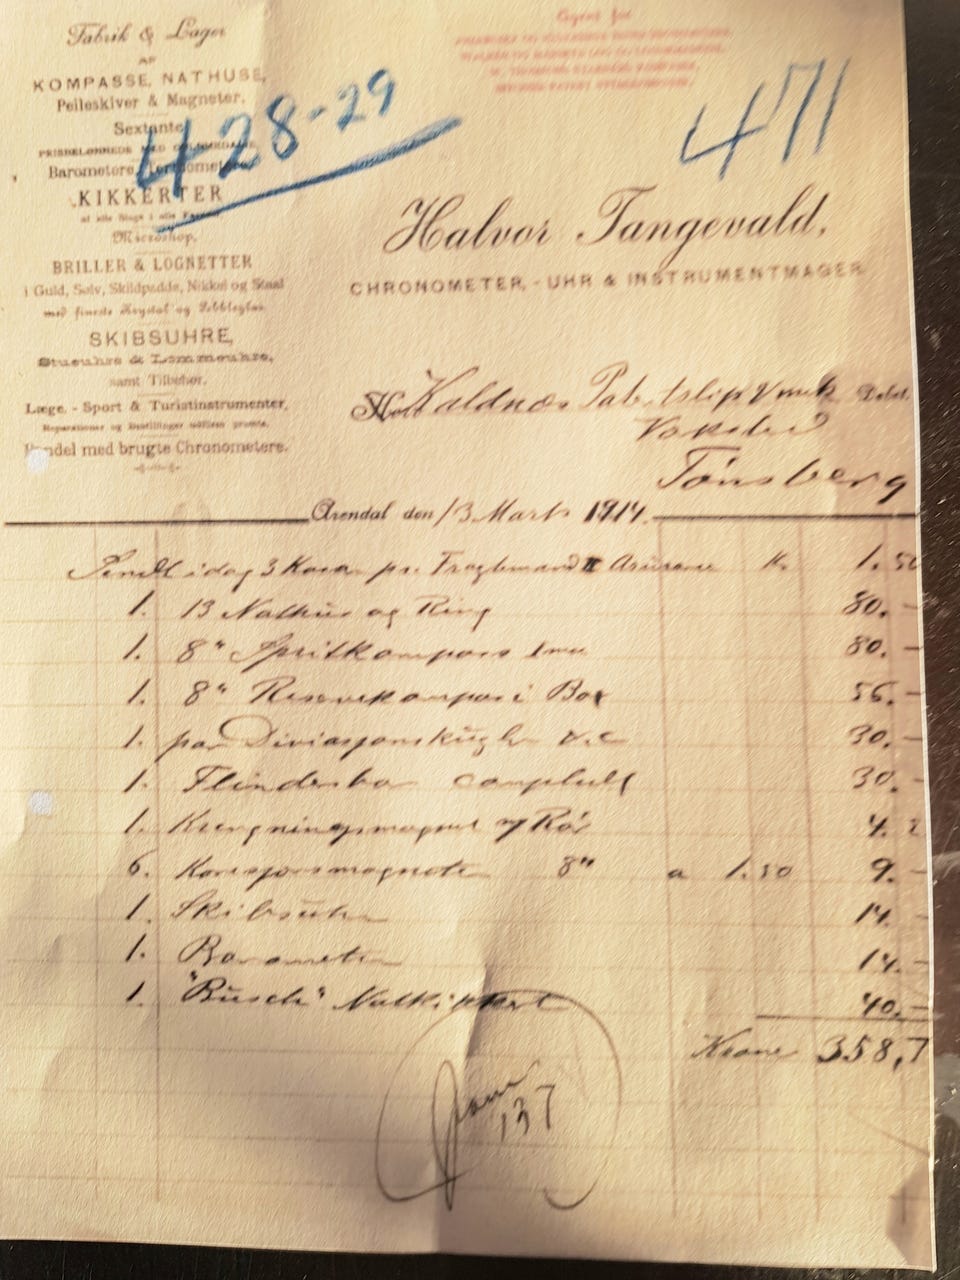 Fabrik & Lager
AF
KOMPASSE, NATHUSE,
Peileskiver & Magneter.
Sextanter
PRISBELØNNEDE MED
Barometere, Termometere
KIKKERTER
af alle Slags i alle
Microskop.
BRILLER & LOGNETTER
i Guld, Sølv, Skildpadde, Nikkel og Staal
med fineste Krystal og Pebbleglas.
SKIBSUHRE,
Stueuhre & Lommeuhre,
samt Tilbehør.
Læge, - Sport & Turistinstrumenter,
Reparationer og Bestillinger udføres promte.
Handel med brugte Chronometere.
428-29
Agent for
471
Halvor Tangevald,
CHRONOMETER, - UHR & INSTRUMENTMAGER
Kaldnæs Patentslip & mek Debet.
Værksted
Tönsberg
Arendal den 13 Marts 1914.
Sendt idag 3 Kasser pr. Assurance Kr. 1.50
1. 13 Nathus og Ring 80.-
1. 8" Spritkompass 80.-
1. 8" Reservekompas i Box 56.-
1. par 30.-
1. Flindersbar 30.-
1. Krengningsmagnet og Rör 4. 2
6. 8" a 1.50 9.-
1. Skibsuhr 14.-
1. Barometer 14.-
1. "Busch" Natkikkert 40.-
Kroner 358,7
137